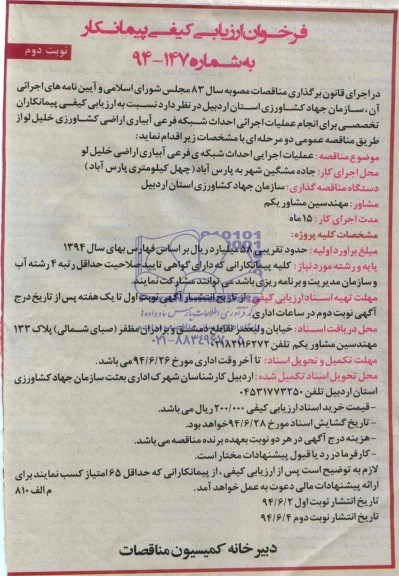 فرخوان ارزیابی کیفی پیمانکار
به شماره ۱۴۷-۹۴
نوبت دوم
در اجرای قانون برگذاری مناقصات مصوبه سال ۸۳ مجلس شورای اسلامی و آیین نامه های اجرائی
آن ، سازمان جهاد کشاورزی استان اردبیل در نظر دارد نسبت به ارزیابی کیفی پیمانکاران
تخصصی برای انجام عملیات اجرائی احداث شبکه فرعی آبیاری اراضی کشاورزی خلیل لو از
طریق مناقصه عمومی دو مرحله ای با مشخصات زیر اقدام نماید:
موضوع مناقصه : عملیات اجرایی احداث شبکه ی فرعی آبیاری اراضی خلیل لو
محل اجرای کار : جاده مشگین شهر به پارس آباد (چهل کیلومتری پارس آباد)
دستگاه مناقصه گذاری : سازمان جهاد کشاورزی استان اردبیل
مشاور : مهندسین مشاور یکم
مدت اجرای کار : ۱۵ ماه
مشخصات کلیه پروژه :
مبلغ برآورد اولیه : حدود تقریبی ۵۸ میلیارد ریال بر اساس فهارس بهای سال ۱۳۹۴
پایه و رشته مورد نیاز : کلیه پیمانکارانی که دارای گواهی تایید صلاحیت حداقل رتبه ۴ رشته آب
و سازمان مدیریت و برنامه ریزی باشد می توانند مشارکت نمایند.
مهلت تهیه اسناد ارزیابی کیفی : از تاریخ انتشار آگهی نوبت اول تا یک هفته پس از تاریخ درج
آگهی نوبت دوم در ساعات اداری
محل دریافت اسناد : خیابان ولیعصر تقاطع دمشق و برادران مظفر (صبای شمالی) پلاک ۱۳۳
مهندسین مشاور یکم تلفن
مهلت تکمیل و تحویل اسناد : تا آخر وقت اداری مورخ ۹۴/۶/۲۶ می باشد.
محل تحویل اسناد تکمیل شده : اردبیل کارشناسان شهرک اداری بعثت سازمان جهاد کشاورزی
استان اردبیل تلفن ۰۴۵۳۱۷۷۳۲۵۰
- قیمت خرید اسناد ارزیابی کیفی ۲۰۰/۰۰۰ ریال می باشد.
- تاریخ گشایش اسناد مورخ ۹۴/۶/۲۸ خواهد بود.
- هزینه درج آگهی در هر دو نوبت بعهده برنده مناقصه می باشد.
- کارفرما در رد یا قبول پیشنهادات مختار است.
لازم به توضیح است پس از ارزیابی کیفی ، از پیمانکارانی که حداقل ۶۵ امتیاز کسب نمایند برای
ارائه پیشنهادات مالی دعوت به عمل خواهد آمد. م الف ۸۱۰
تاریخ انتشار نوبت اول ۹۴/۶/۲
تاریخ انتشار نوبت دوم ۹۴/۶/۴
دبیرخانه کمیسیون مناقصات